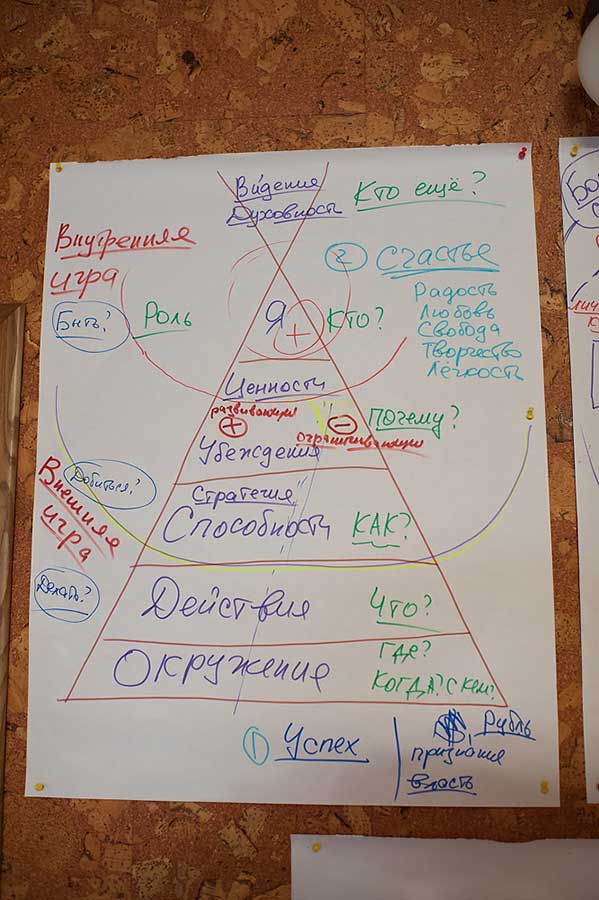 Видение
Духовность
Кто ещё?
Внутренняя
игра
2 Счастье
Радость
Любовь
Свобода
Творчество
Лёгкость
Быть?
Роль
Я
+
Кто?
Ценности
развивающие
+
-
Почему?
ограничивающие
Убеждения
Внешняя
игра
Добиться?
Стратегия
Способности
КАК?
Делать?
Действия
Что?
Окружение
ГДЕ?
КОГДА? С кем?
1 Успех
Рубль
признание
власть